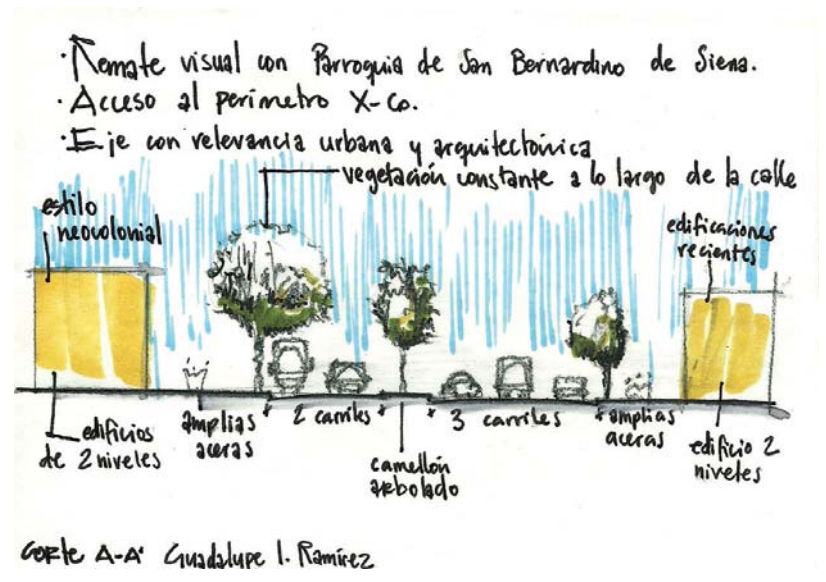 · Remate visual con Parroquia de San Bernardino de Siena.
· Acceso al perímetro X-Co.
· Eje con relevancia urbana y arquitectónica
vegetación constante a lo largo de la calle
estilo
neocolonial
edificaciones
recientes
edificios
de 2 niveles
amplias
aceras
2 carriles
camellón
arbolado
3 carriles
amplias
aceras
edificio 2
niveles
Corte A-A' Guadalupe I. Ramírez